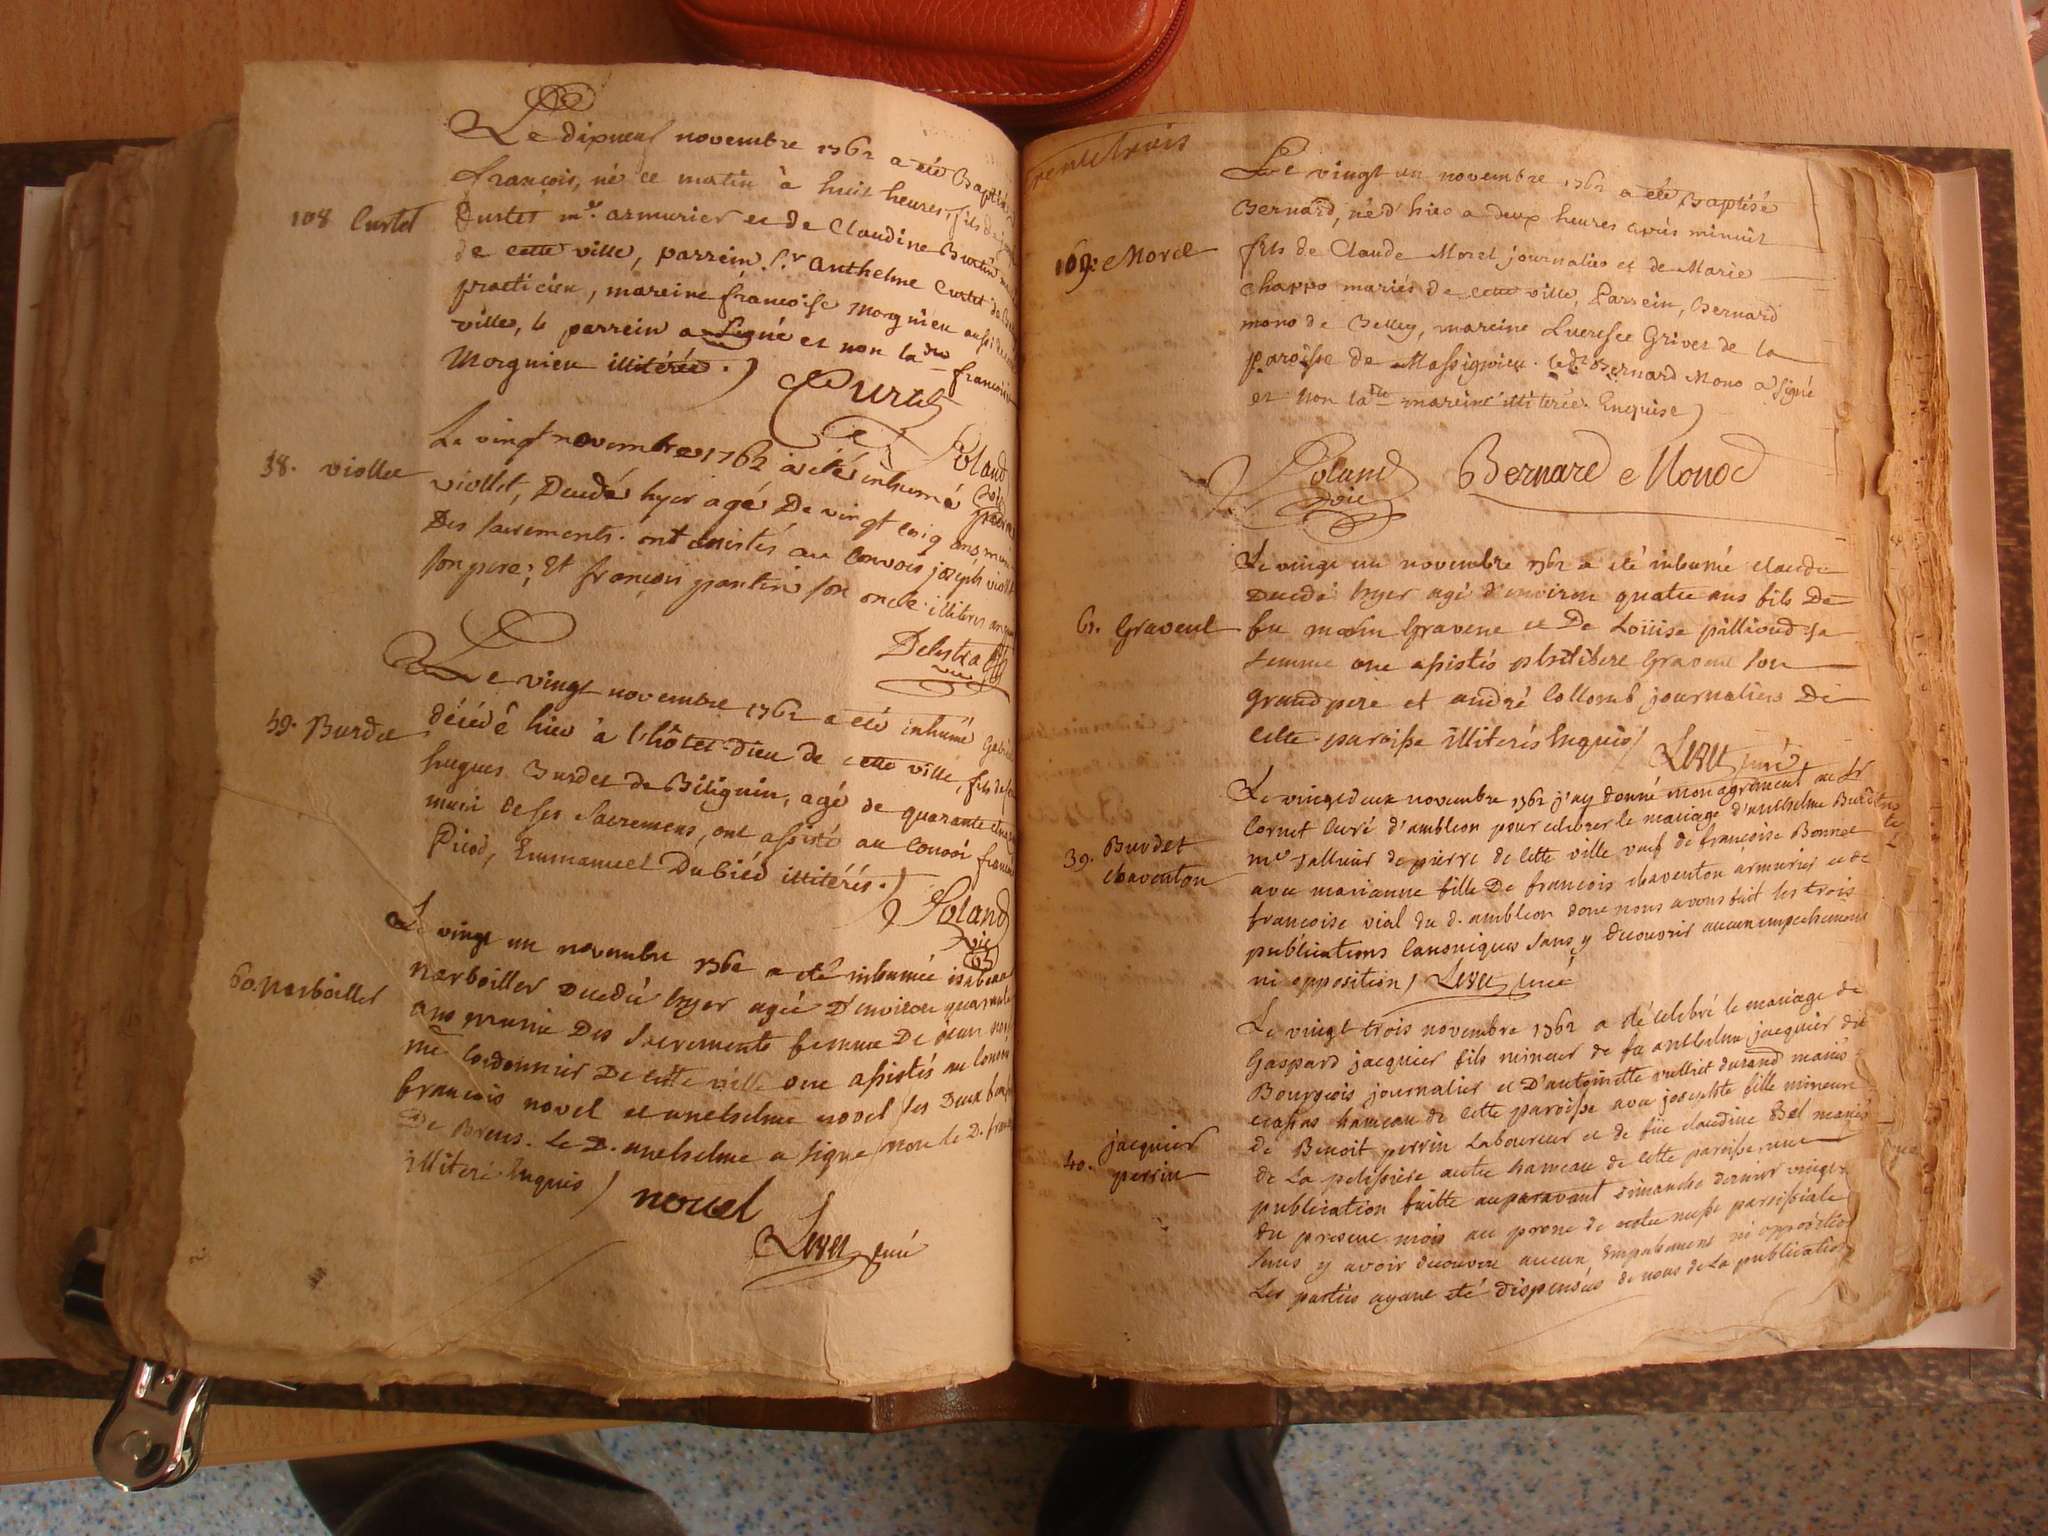 Le dixneuf novembre 1762 a été Baptisé
françois, né ce matin à huit heures, fils de
108 Curtet
Curtet me. armurier et de Claudine Burtin
de cette ville, parrein Sr anthelme Curtet de
practicien, mareine françoise Morgnieu aussi de
ville, le parrein a signé et non la dte françoise
Morgnieu illitérée.
Curtet
Roland vic
Le vingt novembre 1762 a été inhumé
58. viollet
viollet, Decedé hyer agé De vingt cinq ans muni
Des sacrements. ont assistés au Convois joseph viollet
son pere; Et françois pantin son oncle illiteres enquis
Delestra vic
Le vingt novembre 1762 a été inhumé Gabriel
59. Burdet
décédé hier à l'hôtel-dieu de cette ville, fils de feu
hugues Burdet de Billignin, agé de quarante cinq
muni de ses Sacremens, ont assisté au convoi françois
Picod, Emmanuel Dubiéd illitérés.
Roland vic
Le vingt un novembre 1762 a été inhumée isabeau
60. Narboillet
Narboillet Decedée hyer agée D'environ quarante
ans munie Des Sacrements femme De jean novel
me Cordonnier De cette ville ont assistés au Convois
francois novel et anthelme novel ses Deux
De Brens. Le D. anthelme a signe non le D. francois
illiteré Enquis
novel
curé
trente trois
Le vingt un novembre 1762 a été Baptisé
Bernard, né d'hier a deux heures après minuit
109. Morel
fils de Claude Morel journalier et de Marie
Chappo mariés de cette ville, Parrein, Bernard
mono de Belley, mareine Lucresse Grivet de la
paroisse de Massignieu. le dt Bernard Mono a signé
et non la dte mareine illiterée Enquise
Roland vic
Bernard Monod
Le vingt un novembre 1762 a été inhumé claude
Decedé hyer agé d'environ quatre ans fils De
61. Gravent
feu Gravene et De Loüise pillioud sa
femme ont assistés philibert Gravene son
grandpere et andré Collomb journaliers De
cette paroisse illiterés Enquis
curé
Le vingt deux novembre 1762 j'ay donné mon agrément au Sr
Cornet Curé d'ambleon pour celebrer le mariage d'anthelme Burdet
39. Burdet
chaventon
me talleur de pierre de cette ville veuf de françoise Bonnet
avec marianne fille De francois chaventon armurier et de
francoise vial du d. ambleon dont nous avons fait les trois
publications Canoniques sans y decouvrir aucun empechement
ni opposition curé
Le vingt trois novembre 1762 a été celebré le mariage de
Gaspard jacquier fils mineur de feu anthelme jacquier dit
Bourgeois journalier et D'antoinette durand mariés
hameau de cette paroisse avec josephte fille mineure
40. jacquier
perrin
de Benoit perrin Laboureur et de feüe claudine Bel mariés
de La pelissiere autre hameau de cette paroisse, une
publication faitte auparavant dimanche dernier vingt
du present mois au prone de notre messe paroissiale
sans y avoir decouvert aucun Empechement ni opposition
Les parties ayant été dispensées de nous de La publication